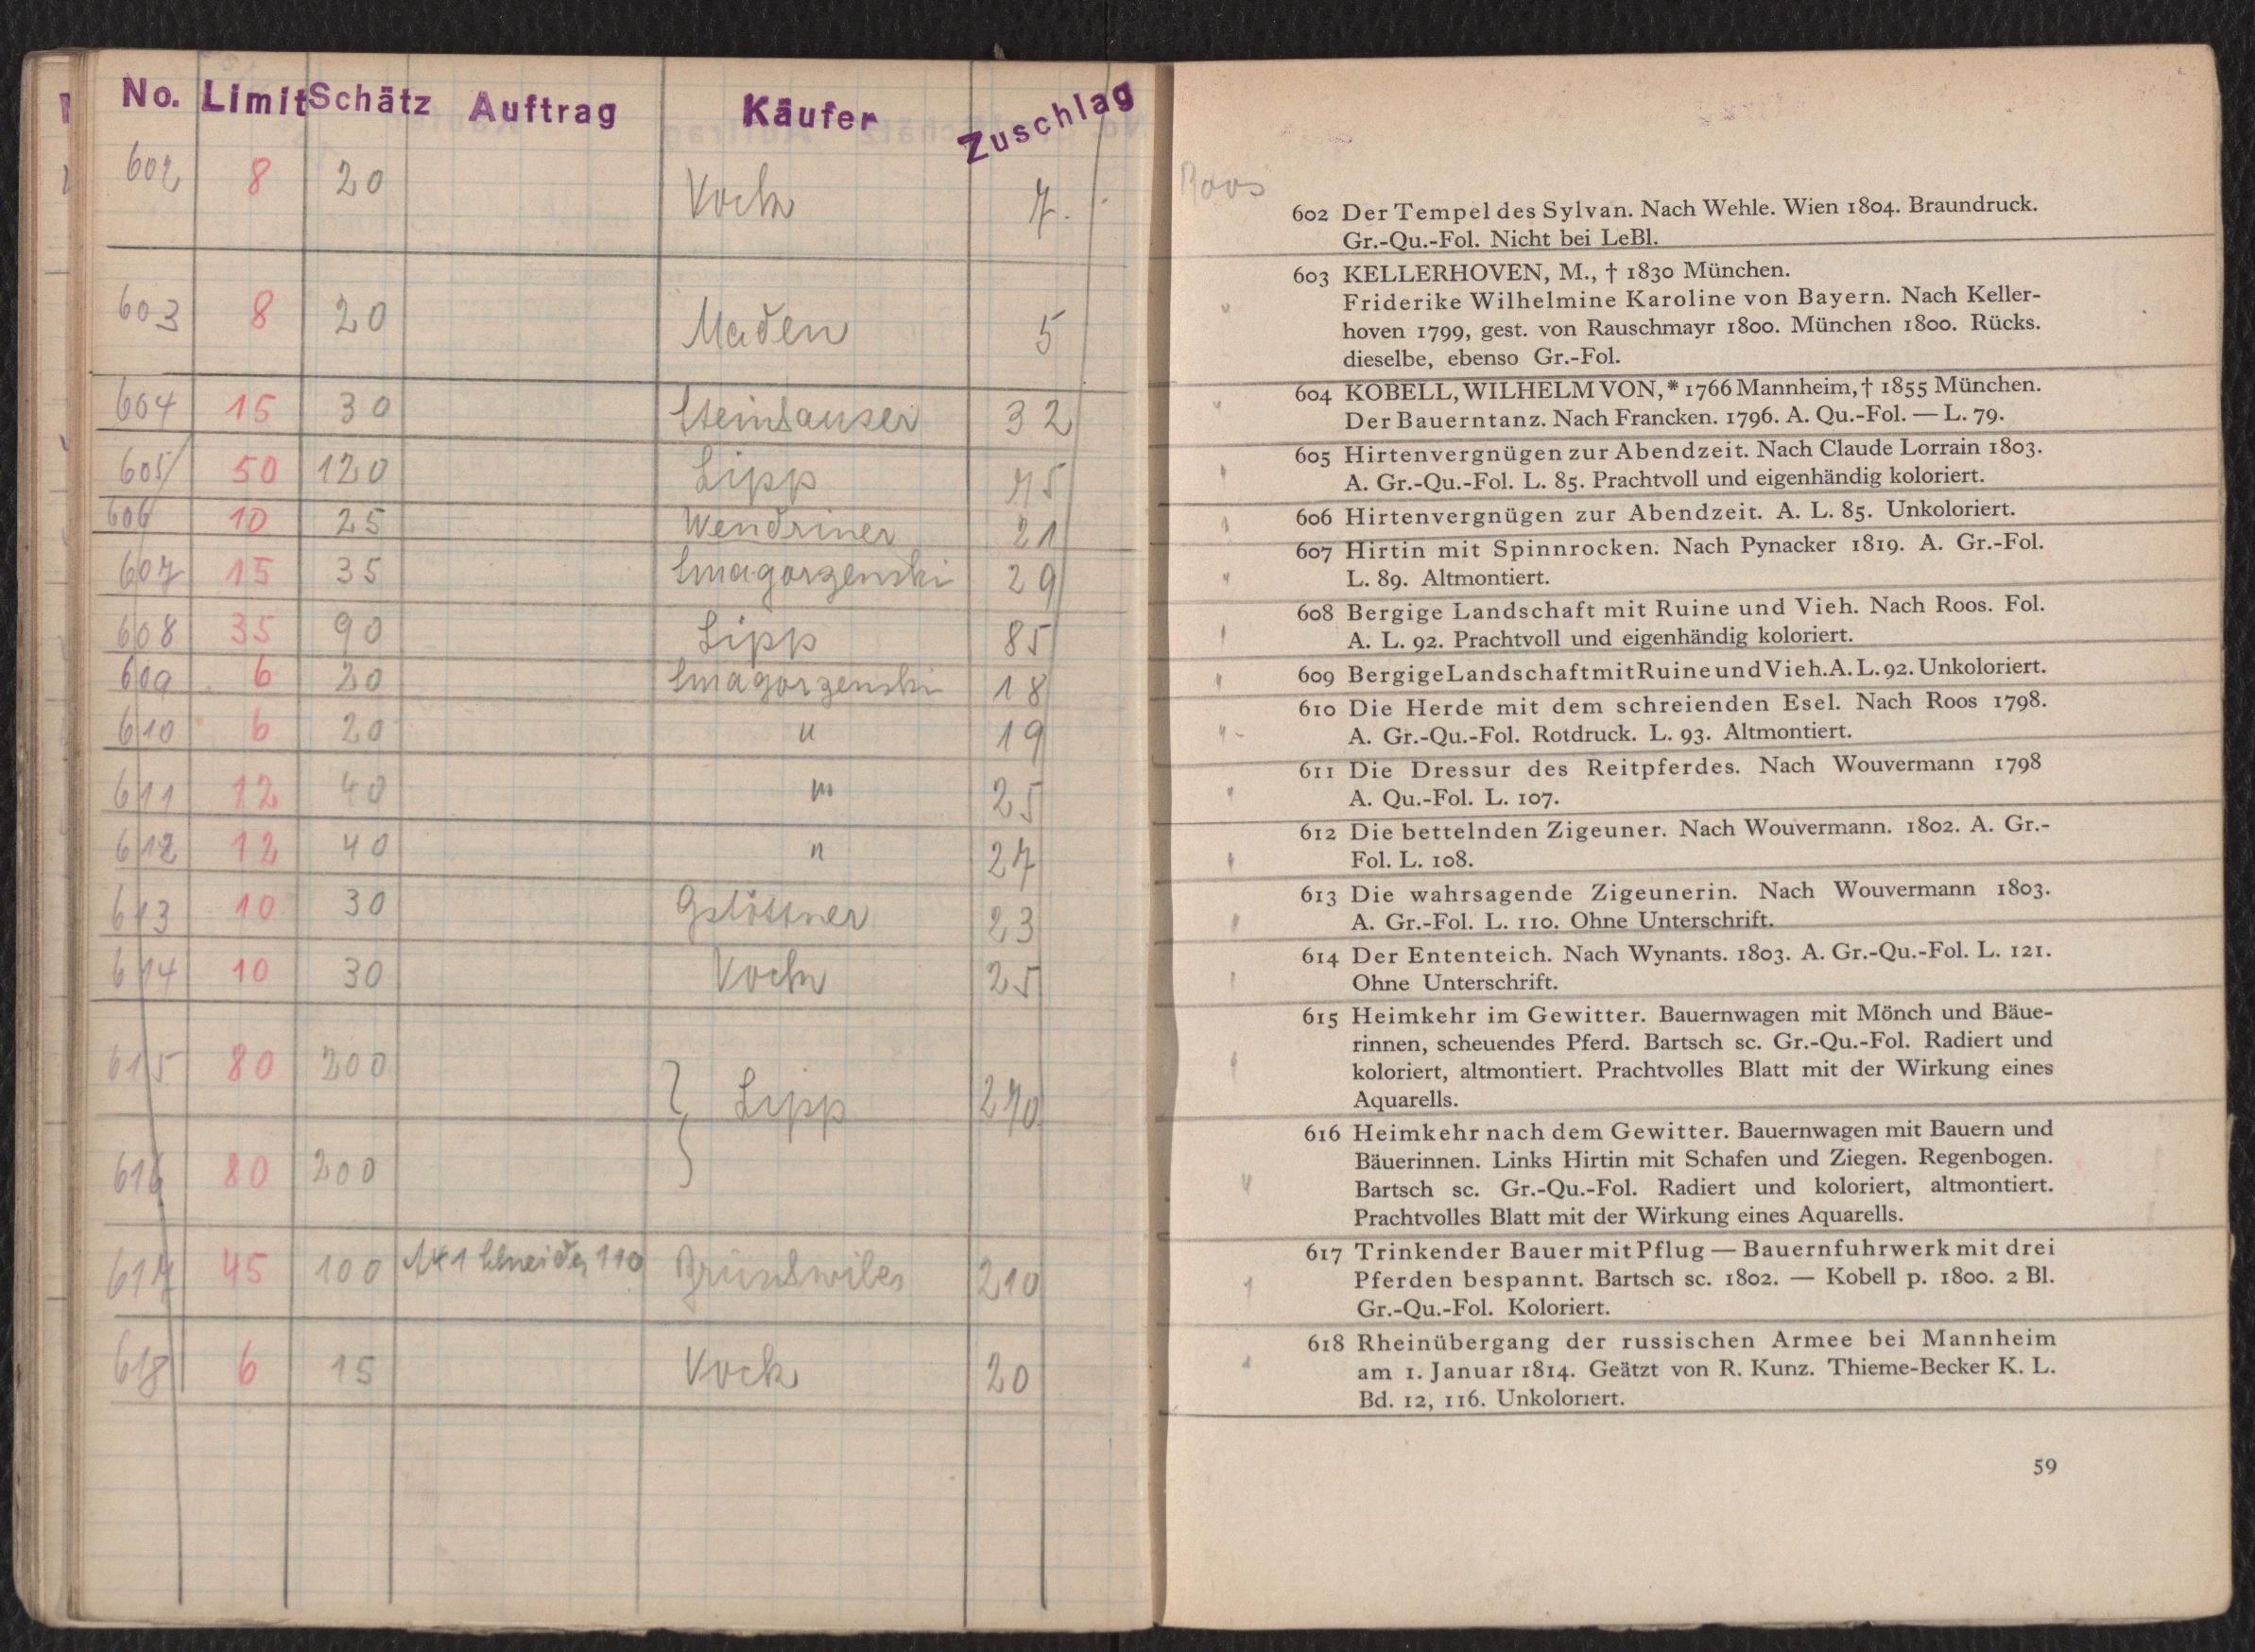 No. Limit Schätz Auftrag Käufer Zuschlag
602 8 20 Vock 7.
603 8 20 Maden 5
604 15 30 Steinhauser 32
605 50 120 Lipp 75
606 10 25 Wendriner 21
607 15 35 Smagorzenski 29
608 35 90 Lipp 85
609 6 20 Smagorzenski 18
610 6 20 " 19
611 12 40 " 25
612 12 40 " 27
613 10 30 Gstöttner 23
614 10 30 Vock 25
615 80 200
Lipp 270
616 80 200
617 45 100 Schneider 110 210
618 6 15 Vock 20
Roos
602 Der Tempel des Sylvan. Nach Wehle. Wien 1804. Braundruck.
Gr.-Qu.-Fol. Nicht bei LeBl.
603 KELLERHOVEN, M., † 1830 München.
Friderike Wilhelmine Karoline von Bayern. Nach Keller-
hoven 1799, gest. von Rauschmayr 1800. München 1800. Rücks.
dieselbe, ebenso Gr.-Fol.
604 KOBELL, WILHELM VON, * 1766 Mannheim, † 1855 München.
Der Bauerntanz. Nach Francken. 1796. A. Qu.-Fol. — L. 79.
605 Hirtenvergnügen zur Abendzeit. Nach Claude Lorrain 1803.
A. Gr.-Qu.-Fol. L. 85. Prachtvoll und eigenhändig koloriert.
606 Hirtenvergnügen zur Abendzeit. A. L. 85. Unkoloriert.
607 Hirtin mit Spinnrocken. Nach Pynacker 1819. A. Gr.-Fol.
L. 89. Altmontiert.
608 Bergige Landschaft mit Ruine und Vieh. Nach Roos. Fol.
A. L. 92. Prachtvoll und eigenhändig koloriert.
609 Bergige Landschaft mit Ruine und Vieh. A. L. 92. Unkoloriert.
610 Die Herde mit dem schreienden Esel. Nach Roos 1798.
A. Gr.-Qu.-Fol. Rotdruck. L. 93. Altmontiert.
611 Die Dressur des Reitpferdes. Nach Wouvermann 1798
A. Qu.-Fol. L. 107.
612 Die bettelnden Zigeuner. Nach Wouvermann. 1802. A. Gr.-
Fol. L. 108.
613 Die wahrsagende Zigeunerin. Nach Wouvermann 1803.
A. Gr.-Fol. L. 110. Ohne Unterschrift.
614 Der Ententeich. Nach Wynants. 1803. A. Gr.-Qu.-Fol. L. 121.
Ohne Unterschrift.
615 Heimkehr im Gewitter. Bauernwagen mit Mönch und Bäue-
rinnen, scheuendes Pferd. Bartsch sc. Gr.-Qu.-Fol. Radiert und
koloriert, altmontiert. Prachtvolles Blatt mit der Wirkung eines
Aquarells.
616 Heimkehr nach dem Gewitter. Bauernwagen mit Bauern und
Bäuerinnen. Links Hirtin mit Schafen und Ziegen. Regenbogen.
Bartsch sc. Gr.-Qu.-Fol. Radiert und koloriert, altmontiert.
Prachtvolles Blatt mit der Wirkung eines Aquarells.
617 Trinkender Bauer mit Pflug — Bauernfuhrwerk mit drei
Pferden bespannt. Bartsch sc. 1802. — Kobell p. 1800. 2 Bl.
Gr.-Qu.-Fol. Koloriert.
618 Rheinübergang der russischen Armee bei Mannheim
am 1. Januar 1814. Geätzt von R. Kunz. Thieme-Becker K. L.
Bd. 12, 116. Unkoloriert.
59